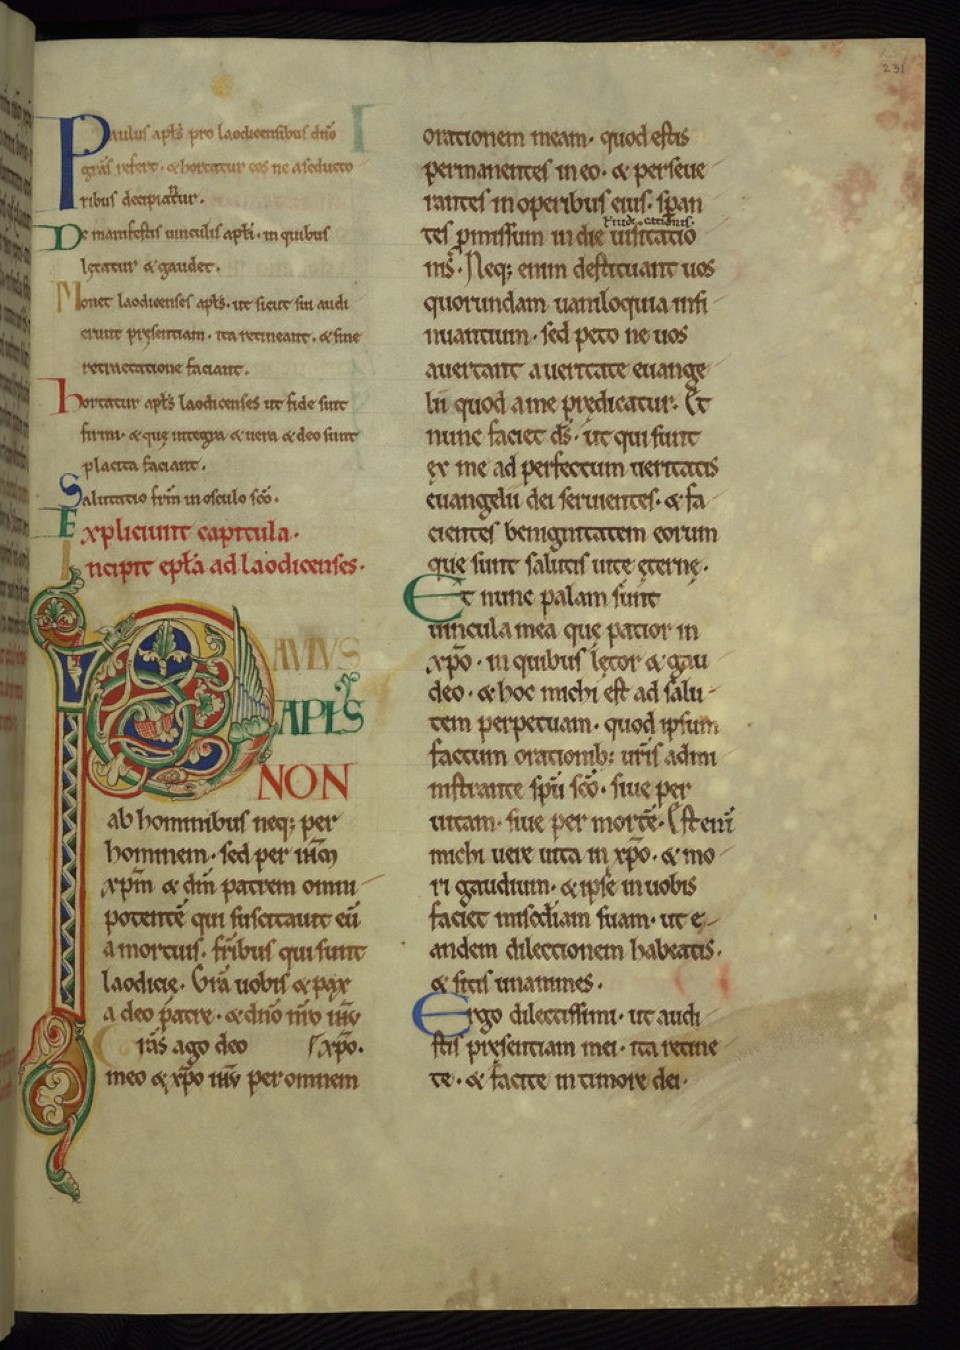 231
Paulus apłs pro laodicensibus dño
gr̄as refert · & hortatur eos ne a seducto
ribus decipiantur.
De manifestis uinculis apłi · in quibus
lętatur & gaudet.
Monet laodicenses apłs · ut sicut sui audi
erunt pręsentiam · ita retineant · & sine
retractatione faciant.
hortatur apłs laodicenses ut fide sint
firmi · & quę integra & uera & deo sunt
placita faciant.
Salutatio fr̄m in osculo sc̄o.
Expliciunt capitula.
Incipit epła ad laodicenses.
PAVLVS
APŁS
NON
ab hominibus neq; per
hominem · sed per ihm̄
xp̄m & dm̄ patrem omni
potentē qui suscitauit eū
a mortuis. fr̄ibus qui sunt
laodicię. Gr̄a uobis & pax
a deo patre · & dn̄o nr̄o ihv̄
Gr̄as ago deo xp̄o.
meo & xp̄o ihv̄ per omnem
orationem meam · quod estis
permanentes in eo · & perseue
rantes in operibus eius · span
tes pmissum in die uisitatio
nis · Neq; enim destituant uos
quorundam uaniloquia insi
nuantium · sed peto ne uos
auertant a ueritate euange
lii quod a me prędicatur. Et
nunc faciet ds̄ · ut qui sunt
ex me ad perfectum ueritatis
euangelii dei seruientes · & fa
cientes benignitatem eorum
que sunt salutis uitę ęternę.
Et nunc palam sunt
uincula mea que patior in
xp̄o · in quibus lętor & gau
deo · & hoc michi est ad salu
tem perpetuam · quod ipsum
factum orationib; ur̄is admi
nistrante spū sc̄o · siue per
uitam · siue per mortē · Est enī
michi uere uita in xp̄o · & mo
ri gaudium · & ipse in uobis
faciet misc̄diam suam · ut e
andem dilectionem habeatis ·
& sitis unanimes.
Ergo dilectissimi · ut audi
stis pręsentiam mei · ita retine
te · & facite in timore dei ·